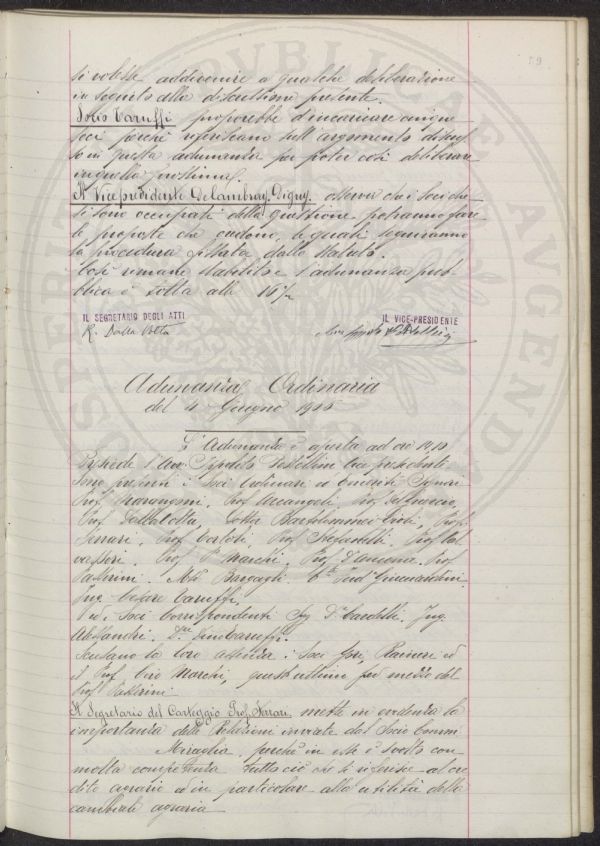 59
si volesse addivenire a qualche deliberazione
in seguito alla discussione presente.
Socio Caruffi proporrebbe d'incaricare cinque
soci perchè riferiscano sull'argomento discus-
so in questa adunanza per poter così deliberare
in quella prossima.
Il Vicepresidente De Cambray-Digny. osserva che i Soci che
si sono occupati della questione potranno fare
le proposte che credono, le quali seguiranno
la procedura fissata dallo Statuto.
Così rimane stabilito e l'adunanza pub-
blica è sciolta alle 16 ½
IL SEGRETARIO DEGLI ATTI
IL VICE-PRESIDENTE
Adunanza Ordinaria
del 4 Giugno
L'Adunanza è aperta ad ore
Presiede l'Avv. Ippolito Pestellini Vice presidente
sono presenti i Soci Ordinari ed Emeriti Signori
Prof. Marangoni, Prof. Arcangeli, Prof.
Prof. Dalla Volta, Dottor Bartolommei Gioli, Prof.
Ferrari, Prof. Prof. Stefanelli, Prof.
Prof. P. Marchi, Prof. D'Ancona, Prof.
Passerini, Bargagli, Guicciardini,
Ing. Cesare Caruffi,
Ed i Soci Corrispondenti Ing.
Alessandri,
Scusano la loro assenza i Soci Raineri ed
il Prof. Ciro Marchi, quest'ultimo per mezzo del
Prof. Passerini.
Il Segretario del Carteggio Prof. Ferrari. mette in evidenza la
importanza delle Relazioni inviate dal Socio Comm.
Miraglia, perchè in esse è svolto con
molta competenza tutto ciò che si riferisce al cre
dito agrario e in particolare alla utilità della
cambiale agraria